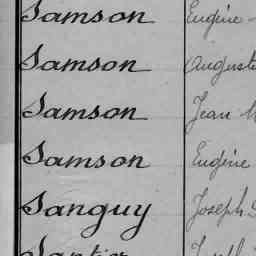 Samson Eugène
Samson Auguste
Samson Jean
Samson Eugène
Sanguy Joseph